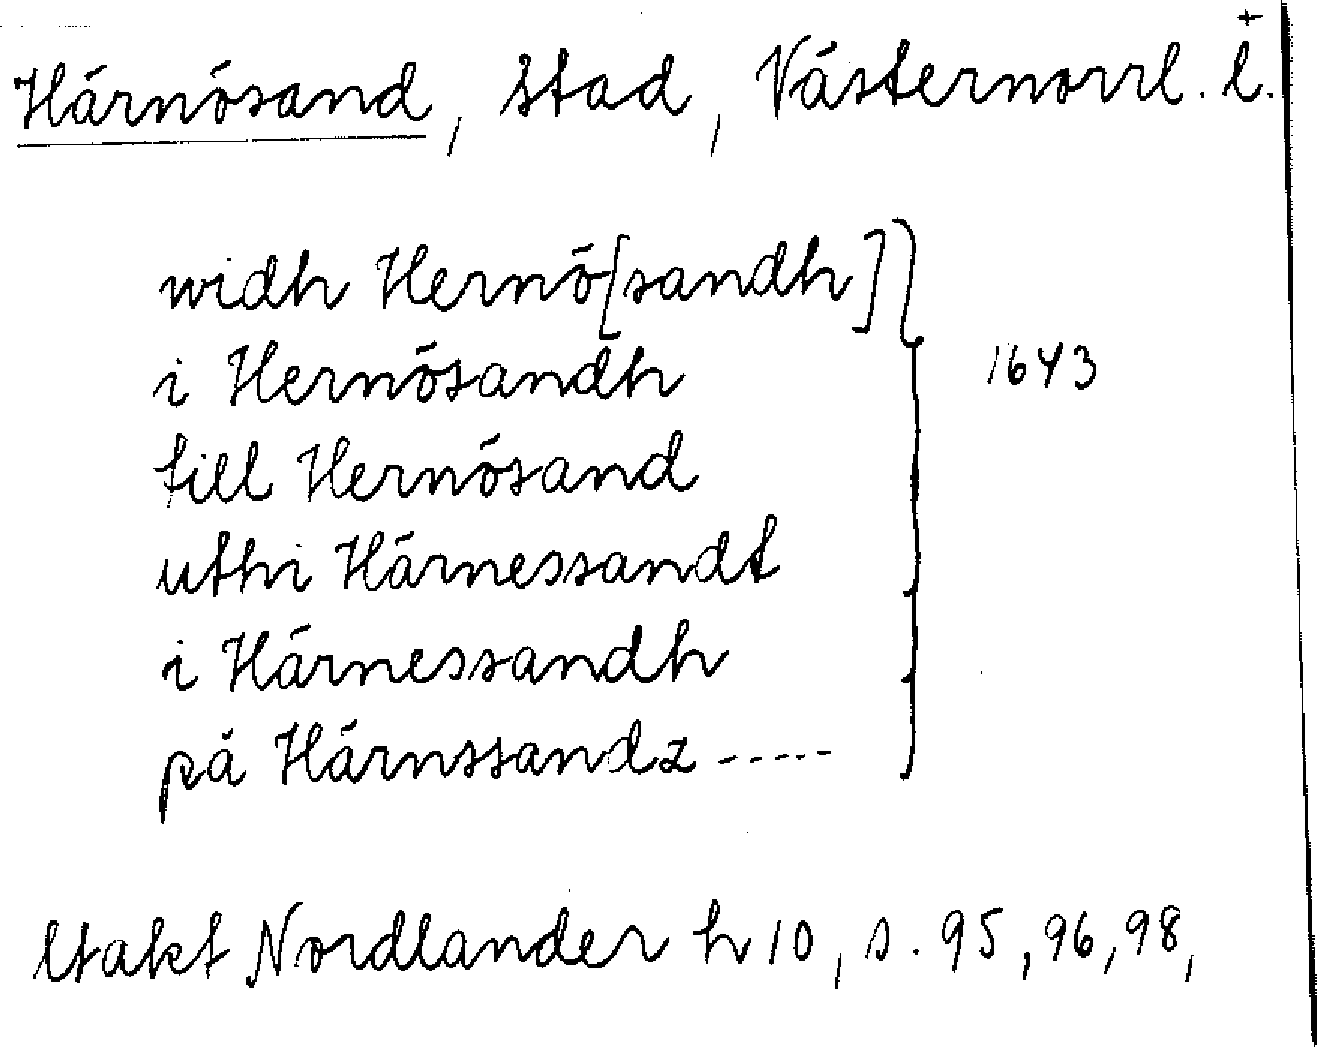 +
Härnösand, stad, Västernorrl. l.
widh Hernö[sandh]
i Hernösandh
till Hernösand
uthi Härnessandt
i Härnessandh
på Härnssandz -----
1643
Utakt Nordlander h 10, s. 95, 96, 98,